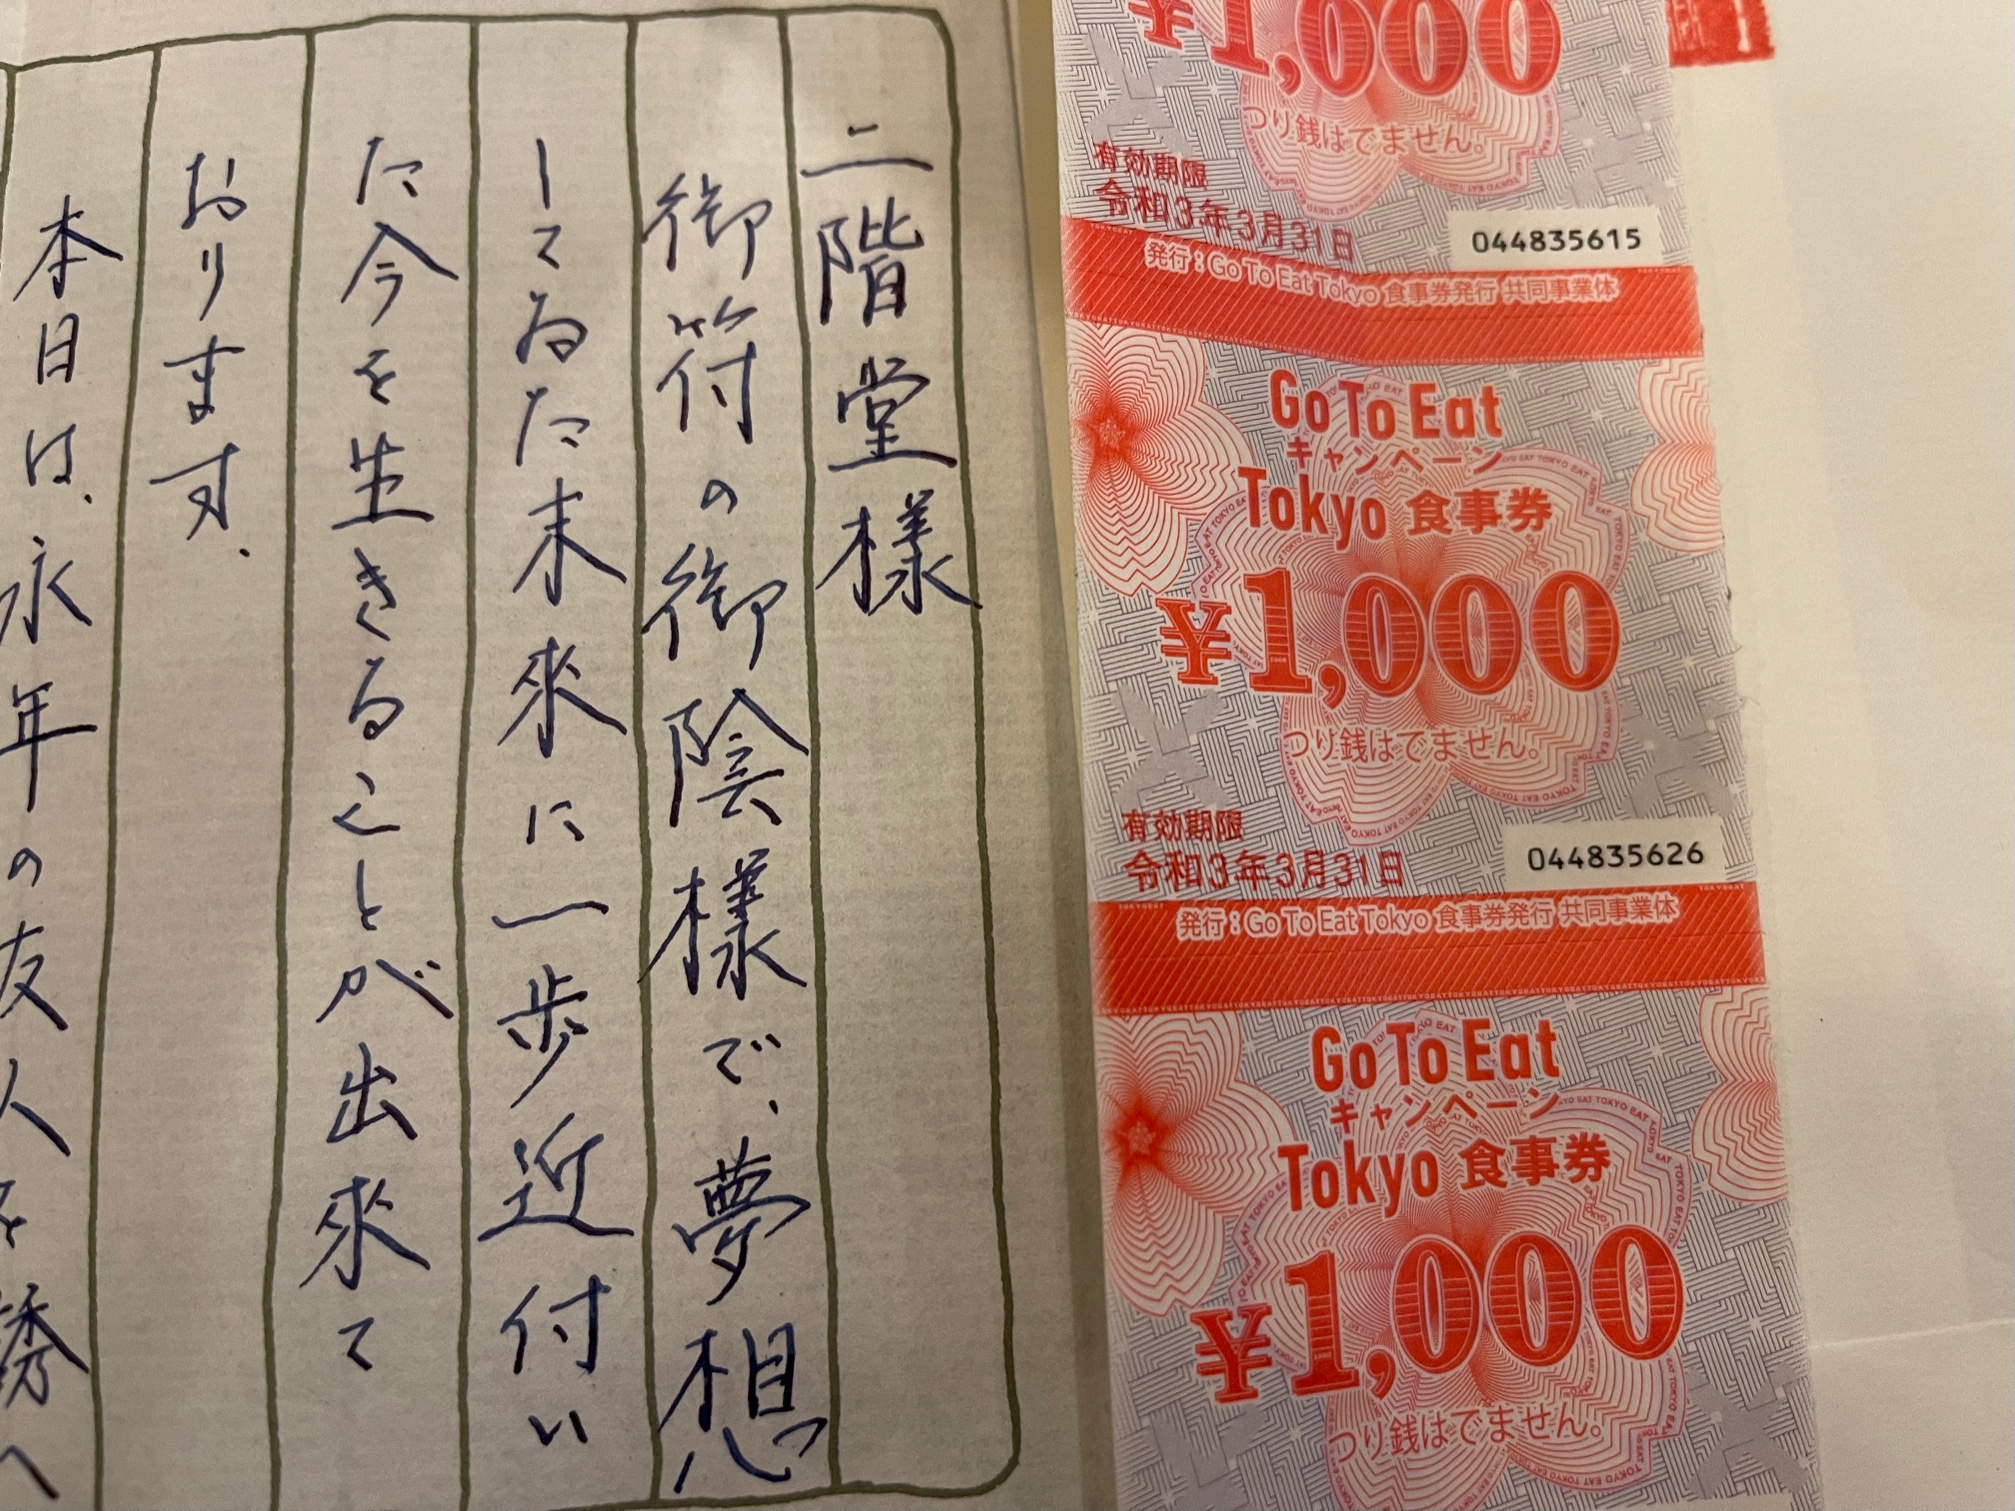 二階堂樣
御符の御陰樣で、夢想
してゐた未來に一歩近付い
た今を生きることが出來て
おります。
本日は、永年の友人を誘へ
¥1,000
つり銭はでません。
有効期限
令和3年3月31日
044835615
発行：Go To Eat Tokyo 食事券発行 共同事業体
Go To Eat
キャンペーン
Tokyo 食事券
¥1,000
つり銭はでません。
有効期限
令和3年3月31日
044835626
発行：Go To Eat Tokyo 食事券発行 共同事業体
Go To Eat
キャンペーン
Tokyo 食事券
¥1,000
つり銭はでません。